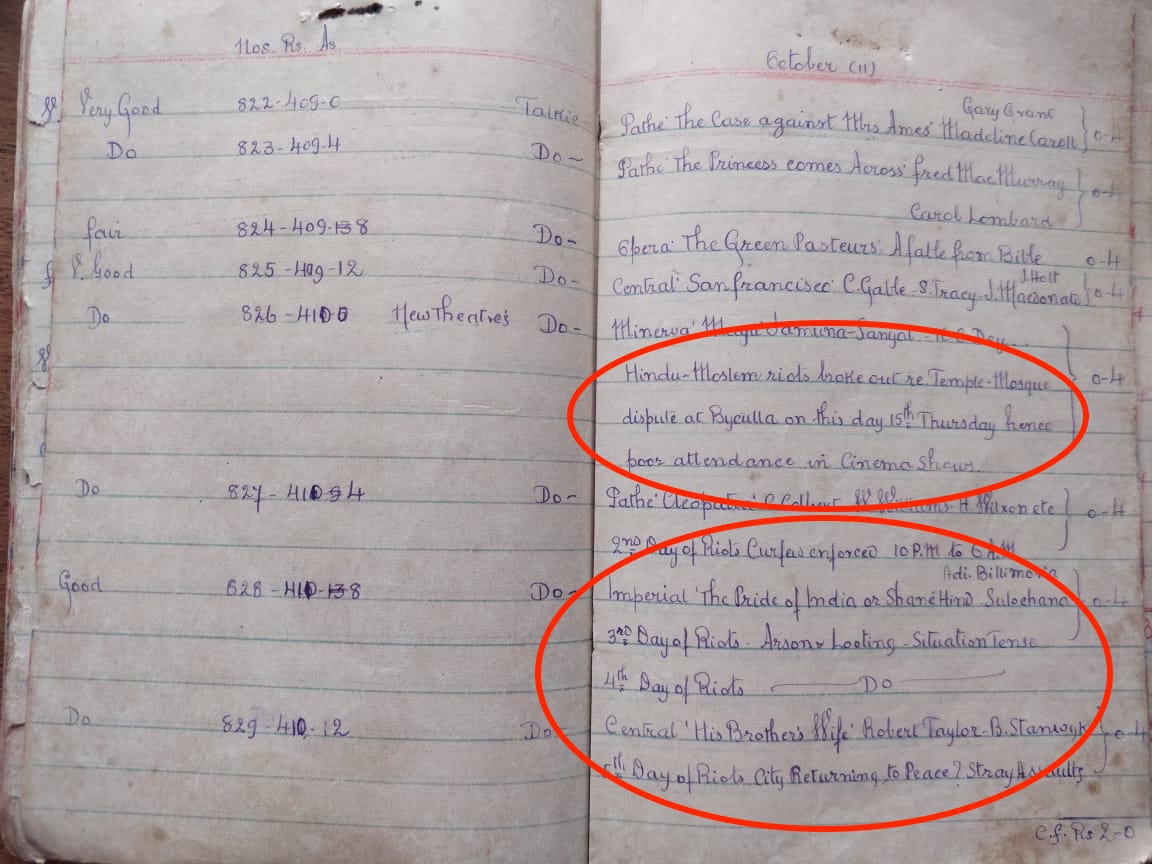 Nos. Rs. As
Very Good 822-409-0 Talkie
Do 823-409-4 Do-
fair 824-409-8 Do-
V. Good 825-409-12 Do-
Do 826-410-0 New Theatres Do-
Do 827-410-4 Do-
Good 828-410-8 Do-
Do 829-410-12 Do
October (11)
Gary Grant
Pathe 'The Case against Mrs Ames' Madeline Caroll 0-4
Pathe 'The Princess comes Across' fred MacMurray 0-4
Carol Lombard
Opera 'The Green Pasteurs' A fable from Bible 0-4
J. Holt
Central 'Sanfrancisco' C. Gable-S. Tracy-J. Macdonald 0-4
Minerva 'Maya' Jamuna-Sanyal-K.C. Dey 0-4
Hindu-Moslem riots broke out re. Temple-Mosque
dispute at Byculla on this day 15th Thursday hence
poor attendance in Cinema Shows.
Pathe 'Cleopatra' C. Colbert W. Williams. H. Wilxon etc 0-4
2nd Day of Riots Curfew enforced 10 P.M to 6 A.M
Adi. Billimoria
Imperial 'The Pride of India or Shane Hind' Sulochana 0-4
3rd Day of Riots. Arson & Looting - Situation Tense
4th Day of Riots Do
Central 'His Brother's Wife' Robert Taylor-B. Stanwyk 0-4
5th Day of Riots City Returning to Peace? Stray Assaults
C.f. Rs 2-0